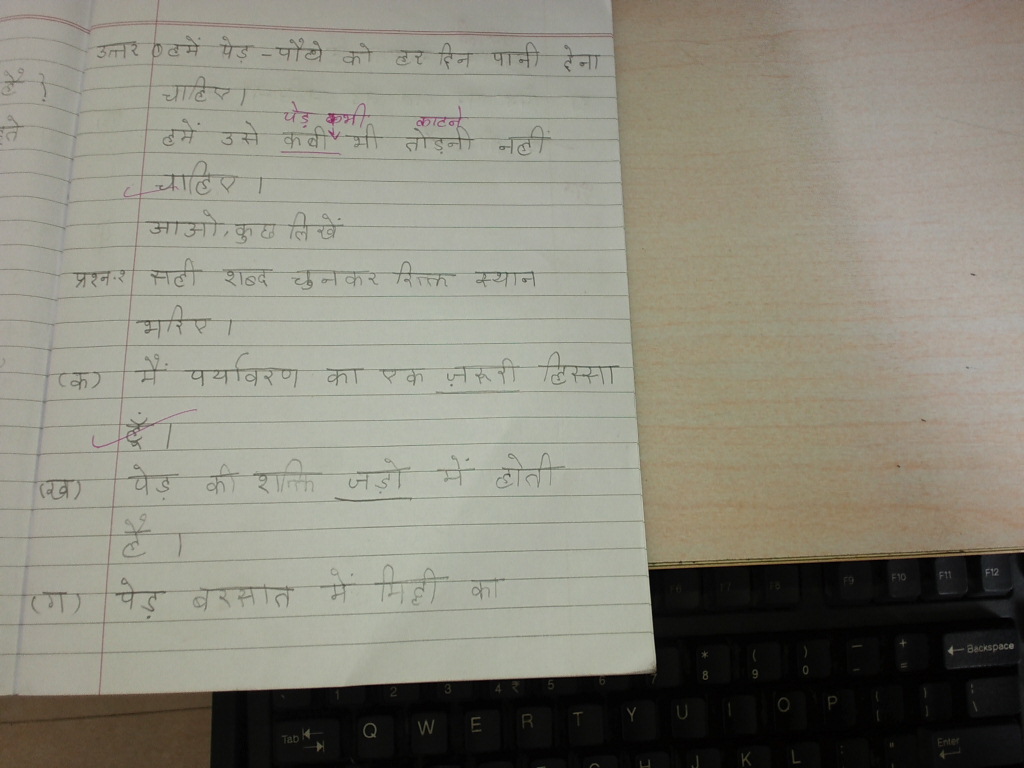 उत्तर हमें पेड़ - पौधे को हर दिन पानी देना
है ?
चाहिए ।
पेड़ कभी काटने
हमें उसे कबी भी तोड़नी नहीं
चाहिए ।
आओ, कुछ लिखें
प्रश्न-१ सही शब्द चुनकर रिक्त स्थान
भरिए ।
(क) मैं पर्यावरण का एक ज़रूरी हिस्सा
हूँ ।
(ख) पेड़ की शक्ति जड़ो में होती
है ।
(ग) पेड़ बरसात में मिट्टी का
F9 F10 F11 F12
* ( ) — + ← Backspace
1 2 3 4 ₹ 5 6 7 8 9 0 - =
Tab Q W E R T Y U I O P { } |
[ ] \
Enter
G H J K L : "